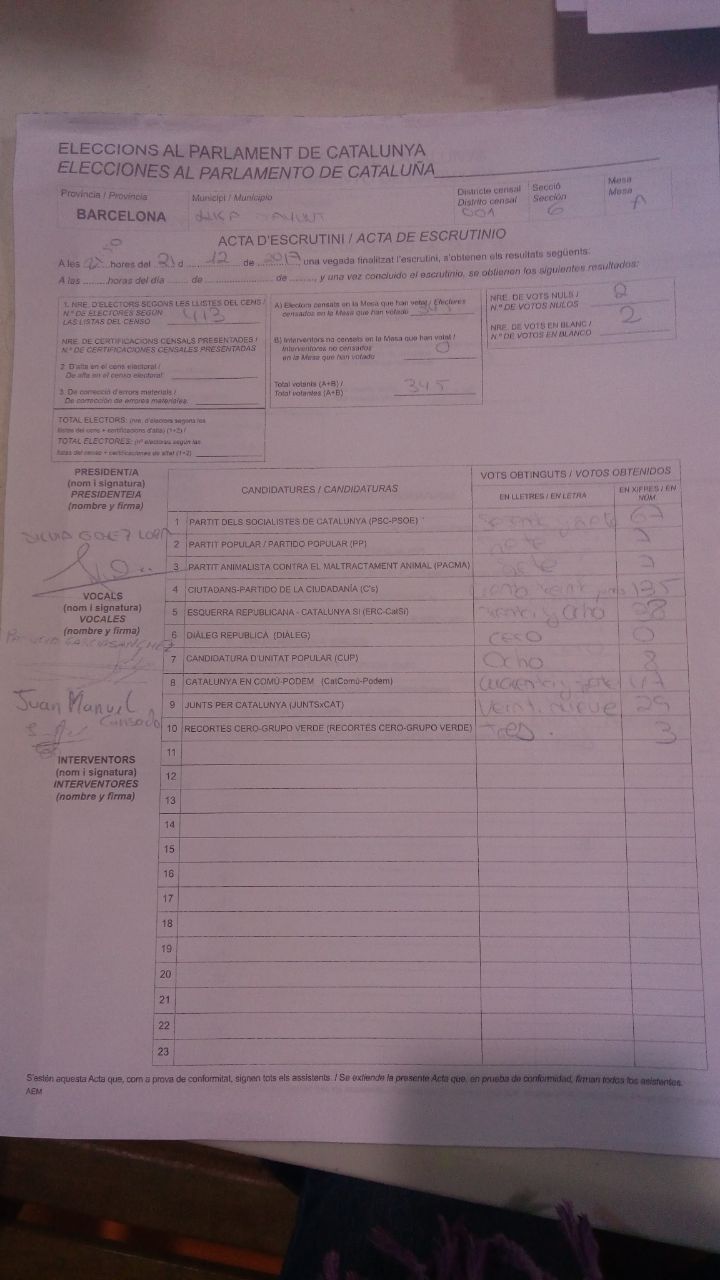 ELECCIONS AL PARLAMENT DE CATALUNYA
ELECCIONES AL PARLAMENTO DE CATALUÑA
Província / Provincia
BARCELONA
Municipi / Municipio
Districte censal
Distrito censal
001
Secció
Sección
6
Mesa
Mesa
A
ACTA D'ESCRUTINI / ACTA DE ESCRUTINIO
A les hores del 21 d 12 de 2017 una vegada finalitzat l'escrutini, s'obtenen els resultats següents:
A las horas del día de de , y una vez concluido el escrutinio, se obtienen los siguientes resultados:
1. NRE. D'ELECTORS SEGONS LES LLISTES DEL CENS /
N.º DE ELECTORES SEGÚN
LAS LISTAS DEL CENSO 413
NRE. DE CERTIFICACIONS CENSALS PRESENTADES /
N.º DE CERTIFICACIONES CENSALES PRESENTADAS
2. D'alta en el cens electoral /
De alta en el censo electoral
3. De correcció d'errors materials /
De corrección de errores materiales
TOTAL ELECTORS: (nre. d'electors segons les
llistes del cens + certificacions d'alta) (1+2) /
TOTAL ELECTORES: (nº electores según las
listas del censo + certificaciones de alta) (1+2)
A) Electors censats en la Mesa que han votat / Electores
censados en la Mesa que han votado 345
B) Interventors no censats en la Mesa que han votat /
Interventores no censados
en la Mesa que han votado 0
Total votants (A+B) /
Total votantes (A+B) 345
NRE. DE VOTS NULS /
N.º DE VOTOS NULOS
NRE. DE VOTS EN BLANC /
N.º DE VOTOS EN BLANCO 2
PRESIDENT/A
(nom i signatura)
PRESIDENTE/A
(nombre y firma)
VOCALS
(nom i signatura)
VOCALES
(nombre y firma)
Juan Manuel
INTERVENTORS
(nom i signatura)
INTERVENTORES
(nombre y firma)
CANDIDATURES / CANDIDATURAS
VOTS OBTINGUTS / VOTOS OBTENIDOS
EN LLETRES / EN LETRA
EN XIFRES / EN NÚM
1 PARTIT DELS SOCIALISTES DE CATALUNYA (PSC-PSOE) 67
2 PARTIT POPULAR / PARTIDO POPULAR (PP) 7
3 PARTIT ANIMALISTA CONTRA EL MALTRACTAMENT ANIMAL (PACMA) 7
4 CIUTADANS-PARTIDO DE LA CIUDADANÍA (C's)
5 ESQUERRA REPUBLICANA - CATALUNYA SÍ (ERC-CatSí)
6 DIÀLEG REPUBLICÀ (DIÀLEG) cero 0
7 CANDIDATURA D'UNITAT POPULAR (CUP) Ocho 8
8 CATALUNYA EN COMÚ-PODEM (CatComú-Podem) 47
9 JUNTS PER CATALUNYA (JUNTSxCAT) Veintinueve 29
10 RECORTES CERO-GRUPO VERDE (RECORTES CERO-GRUPO VERDE) tres. 3
11
12
13
14
15
16
17
18
19
20
21
22
23
S'estén aquesta Acta que, com a prova de conformitat, signen tots els assistents. / Se extiende la presente Acta que, en prueba de conformidad, firman todos los asistentes.
AEM